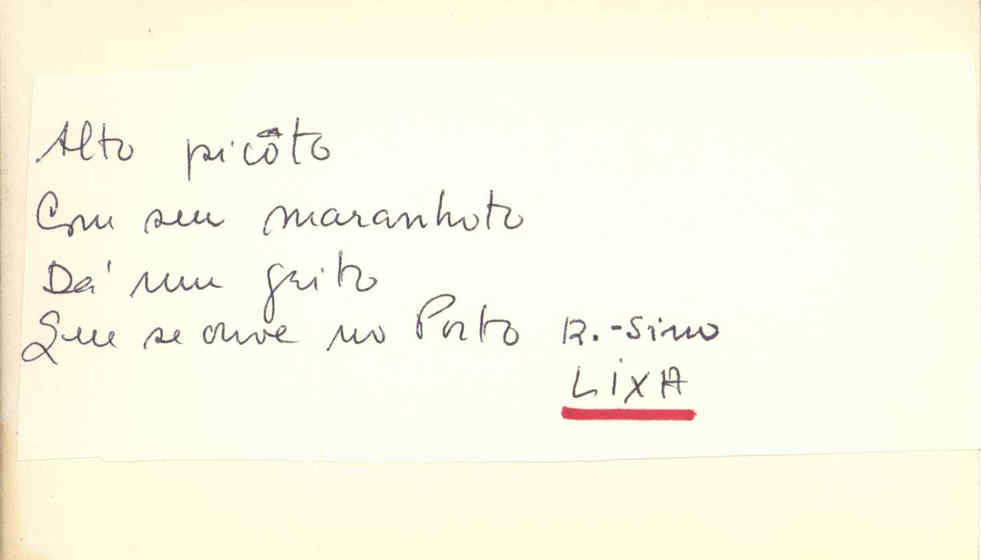 Alto picôto
Com seu maranhoto
Dá um grito
Que se ouve no Porto R.-Sino
LIXA